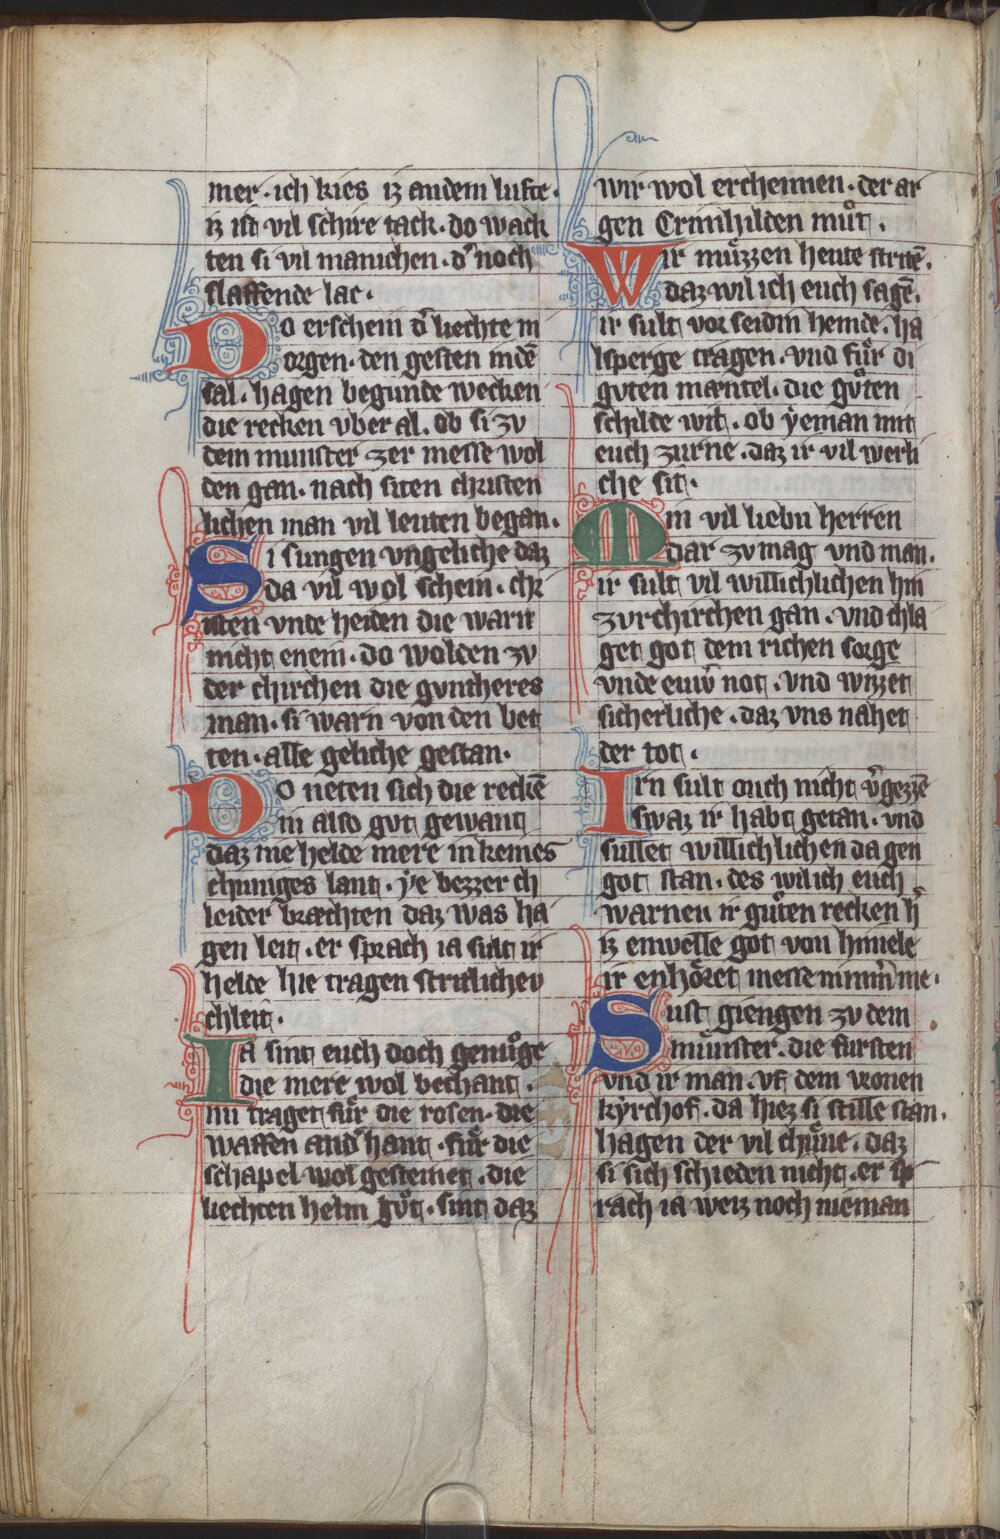 mer · ich kies iz andem lufte ·
iz ist vil schire tack · do wack
ten si vil manichen · d͛ noch
slaffende lac ·
Do erschein d͛ liechte m
orgen · den gesten indē
sal · hagen begunde wecken
die recken vber al · ob si zv
dem munster zer messe wol
den gan · nach siten christen
lichen man vil leuten began ·
Si sungen vngeliche daz
da vil wol schein · chr
isten vnde heiden die warn
nicht enein · do wolden zv
der chirchen die gvntheres
man · si warn von den bet
ten · alle geliche gestan ·
Do neten sich die reckē
in also gvt gewant
daz nie helde mere in keines
chuniges lant · ye bezzer ch
leider bræchten daz was ha
gen leit · er sprach ia sult ir
helde hie tragen stritlichev
chleit ·
Ia sint euch doch genuͦge
die mere wol bechant ·
nu traget fuͤr die rosen · die
waffen and͛ hant · fuͤr die
schapel wol gesteinet · die
liechten helm guͦt · sint daz
wir wol erchennen · der ar
gen Crimhilden muͦt ·
Wir muͤzzen heute stritē ·
daz wil ich euch sagē ·
ir sult vor seidin hemde · ha
lsperge tragen · vnd fuͤr di
gvten mæntel · die guͦten
schilde wit · ob yeman mit
euch zurne · daz ir vil werli
che sit ·
Min vil liebn herren
dar zv mag vnd man ·
ir sult vil willichlichen hin
zvr chirchen gan · vnd chla
get got dem richen sorge
vnde euw͛ not · vnd wizzet
sicherliche · daz vns nahet
der tot ·
Irn sult ouch nicht v͛gezzē
swaz ir habt getan · vnd
sullet willichlichen da gen
got stan · des wil ich euch
warnen ir guͦten recken h͛
iz enwelle got von himele
ir enhoͤret messe nimm͛ me ·
Sust giengen zv dem
muͤnster · die fursten
vnd ir man · vf dem vronen
kyrchof · da hiez si stille stan ·
hagen der vil chuͤne · daz
si sich schieden nicht · er sp
rach ia weiz noch nieman